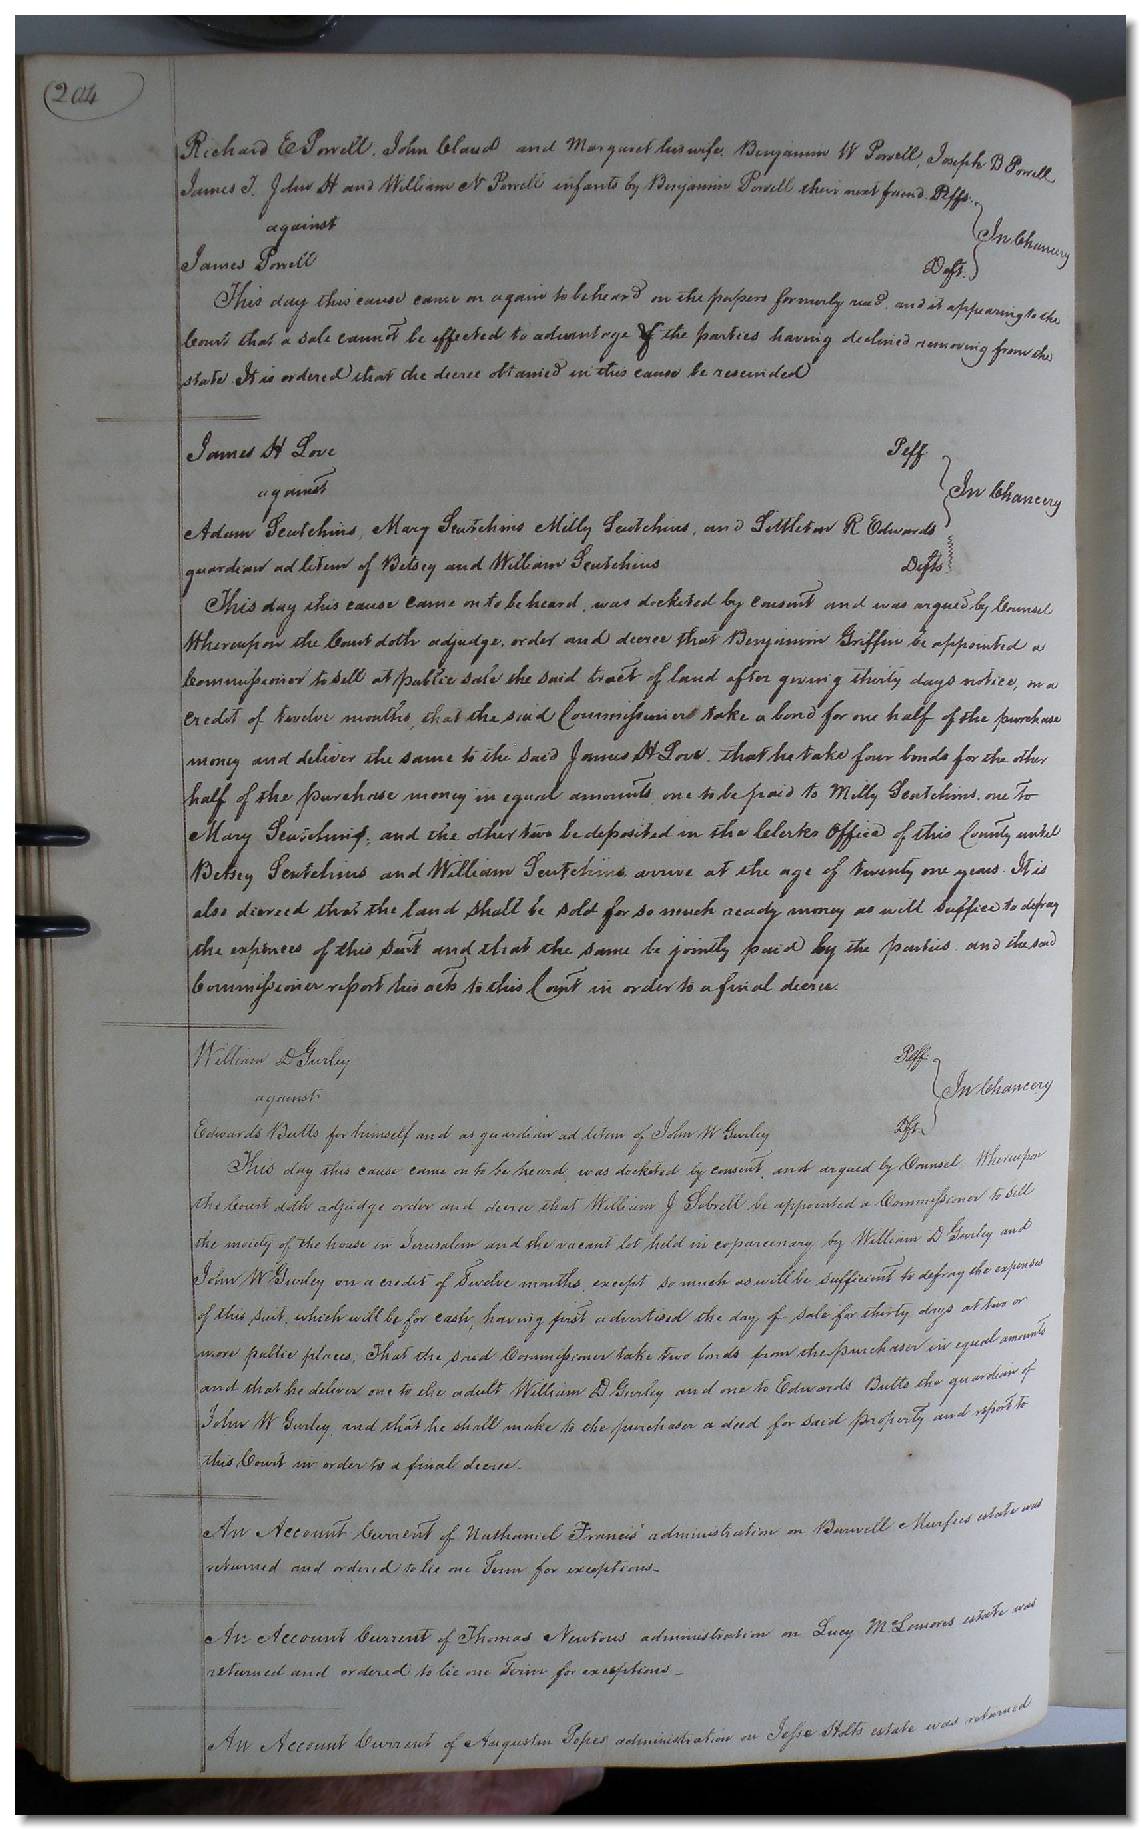 204
Richard E Powell, John Claud and Margaret his wife, Benjamin W Powell, Joseph B Powell
James T. John H and William N Powell infants by Benjamin Powell their next friend. Plffs.
against
In Chancery
James Powell Deft.
This day this cause came on again to be heard on the papers formerly read, and it appearing to the
Court that a sale cannot be effected to advantage of the parties having declined removing from the
state It is ordered that the decree obtained in this cause be rescinded
James H Love Plff
against
In Chancery
Adam Scutchins, Mary Scutchins Milly Scutchins, and Littleton R Edwards
guardian ad litem of Betsey and William Scutchins Defts
This day this cause came on to be heard, was docketed by consent and was argued by Counsel
Whereupon the Court doth adjudge, order and decree that Benjamin Griffin be appointed a
Commissioner to sell at public sale the said tract of land after giving thirty days notice, on a
credit of twelve months, that the said Commissioner take a bond for one half of the purchase
money and deliver the same to the said James H Love. that he take four bonds for the other
half of the purchase money in equal amounts, one to be paid to Milly Scutchins, one To
Mary Scutchins, and the other two be deposited in the Clerks Office of this County until
Betsey Scutchins and William Scutchins arrive at the age of twenty one years. It is
also decreed that the land shall be sold for so much ready money as will suffice to defray
the expences of this suit and that the same be jointly paid by the parties. and the said
Commissioner report his acts to this Court in order to a final decree.
William D Gurley Plff
against
In Chancery
Edwards Butts for himself and as guardian ad litem of John W Gurley Dft.
This day this cause came on to be heard, was docketed by consent, and argued by Counsel. Whereupon
the Court doth adjudge order and decree that William J Sebrell be appointed a Commissioner to sell
the moiety of the house in Jerusalem and the vacant lot held in coparcenary by William D Gurley and
John W Gurley on a credit of Twelve months, except so much as will be sufficient to defray the expenses
of this suit, which will be for cash, having first advertised the day of sale for thirty days at two or
more public places, That the said Commissioner take two bonds from the purchaser in equal amounts
and that he deliver one to the adult William D Gurley and one to Edwards Butts the guardian of
John W Gurley, and that he shall make to the purchaser a deed for said property and report to
this Court in order to a final decree.
An Account Current of Nathaniel Francis' administration on Burwell Murfees estate was
returned and ordered to lie one Term for exceptions.
An Account Current of Thomas Newtons administration on Lucy M Lemores estate was
returned and ordered to lie one Term for exceptions.
An Account Current of Augustin Popes administration on Jesse Holts estate was returned